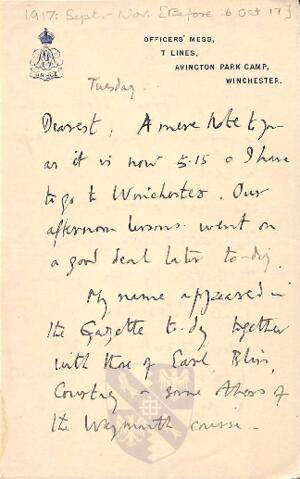 1917: Sept.- Nov. [Before 6 Oct 17]
OFFICERS' MESS,
T LINES,
AVINGTON PARK CAMP,
WINCHESTER.
Tuesday.
Dearest, A mere note to you
as it is now 5.15 & I have
to go to Winchester. Our
afternoon lessons went on
a good deal later to-day.
My name appeared in
the Gazette to-day together
with those of Earl, Bliss,
Courtney & some others of
the Weymouth course -